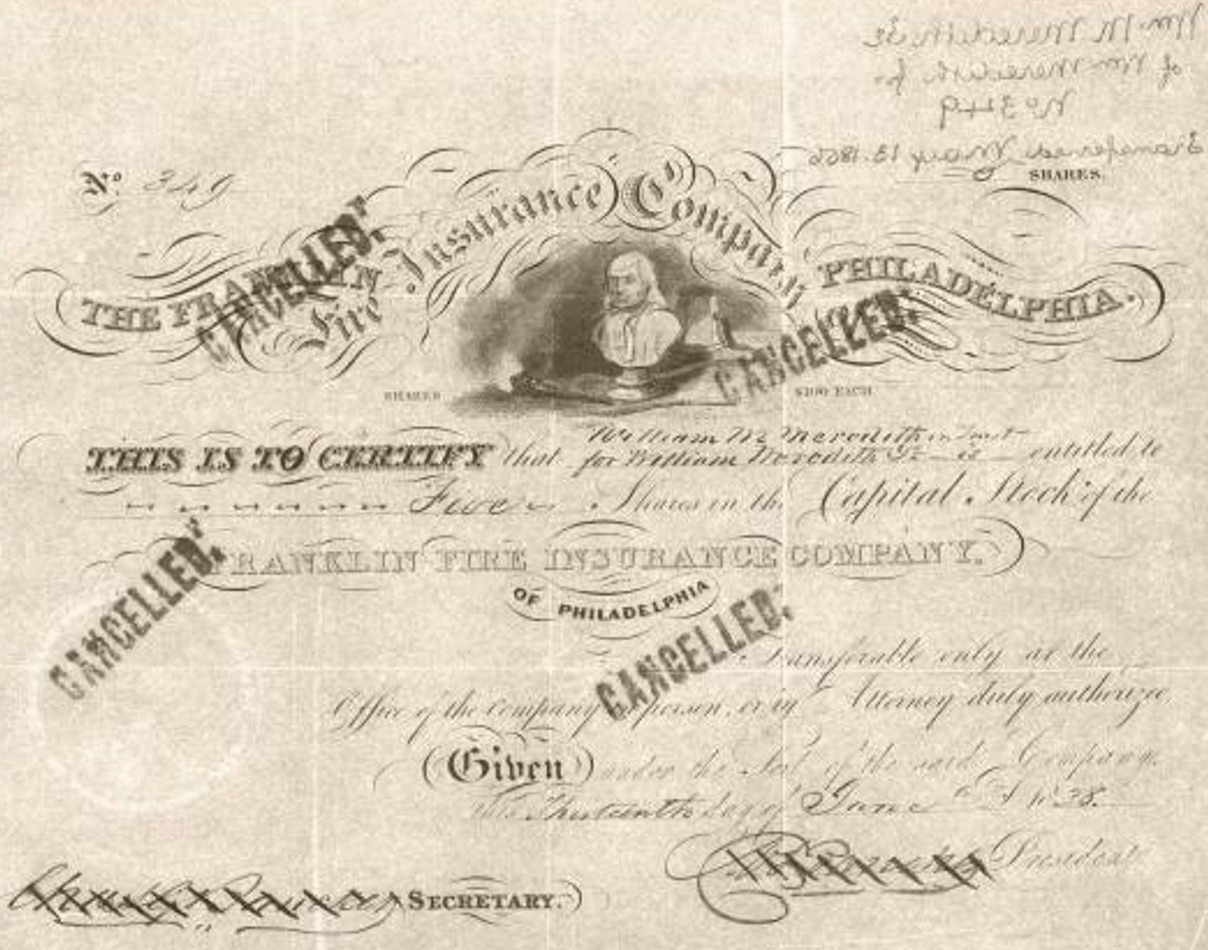 Wm M Meredith Se
of Wm Meredith Jr
No 349
Transferred
SHARES.
No. 349
THE FRANKLIN Fire Insurance Company PHILADELPHIA.
CANCELLED.
CANCELLED.
SHARES $100 EACH
William M Meredith in trust
THIS IS TO CERTIFY that for William Meredith Jr is entitled to
Five Shares in the Capital Stock of the
FRANKLIN FIRE INSURANCE COMPANY,
OF PHILADELPHIA
CANCELLED.
CANCELLED.
Transferable only at the
Office of the Company in person, or by Attorney duly authorized
Given under the Seal of the said Company.
this Thirteenth day of June A D 1838.
President
SECRETARY.